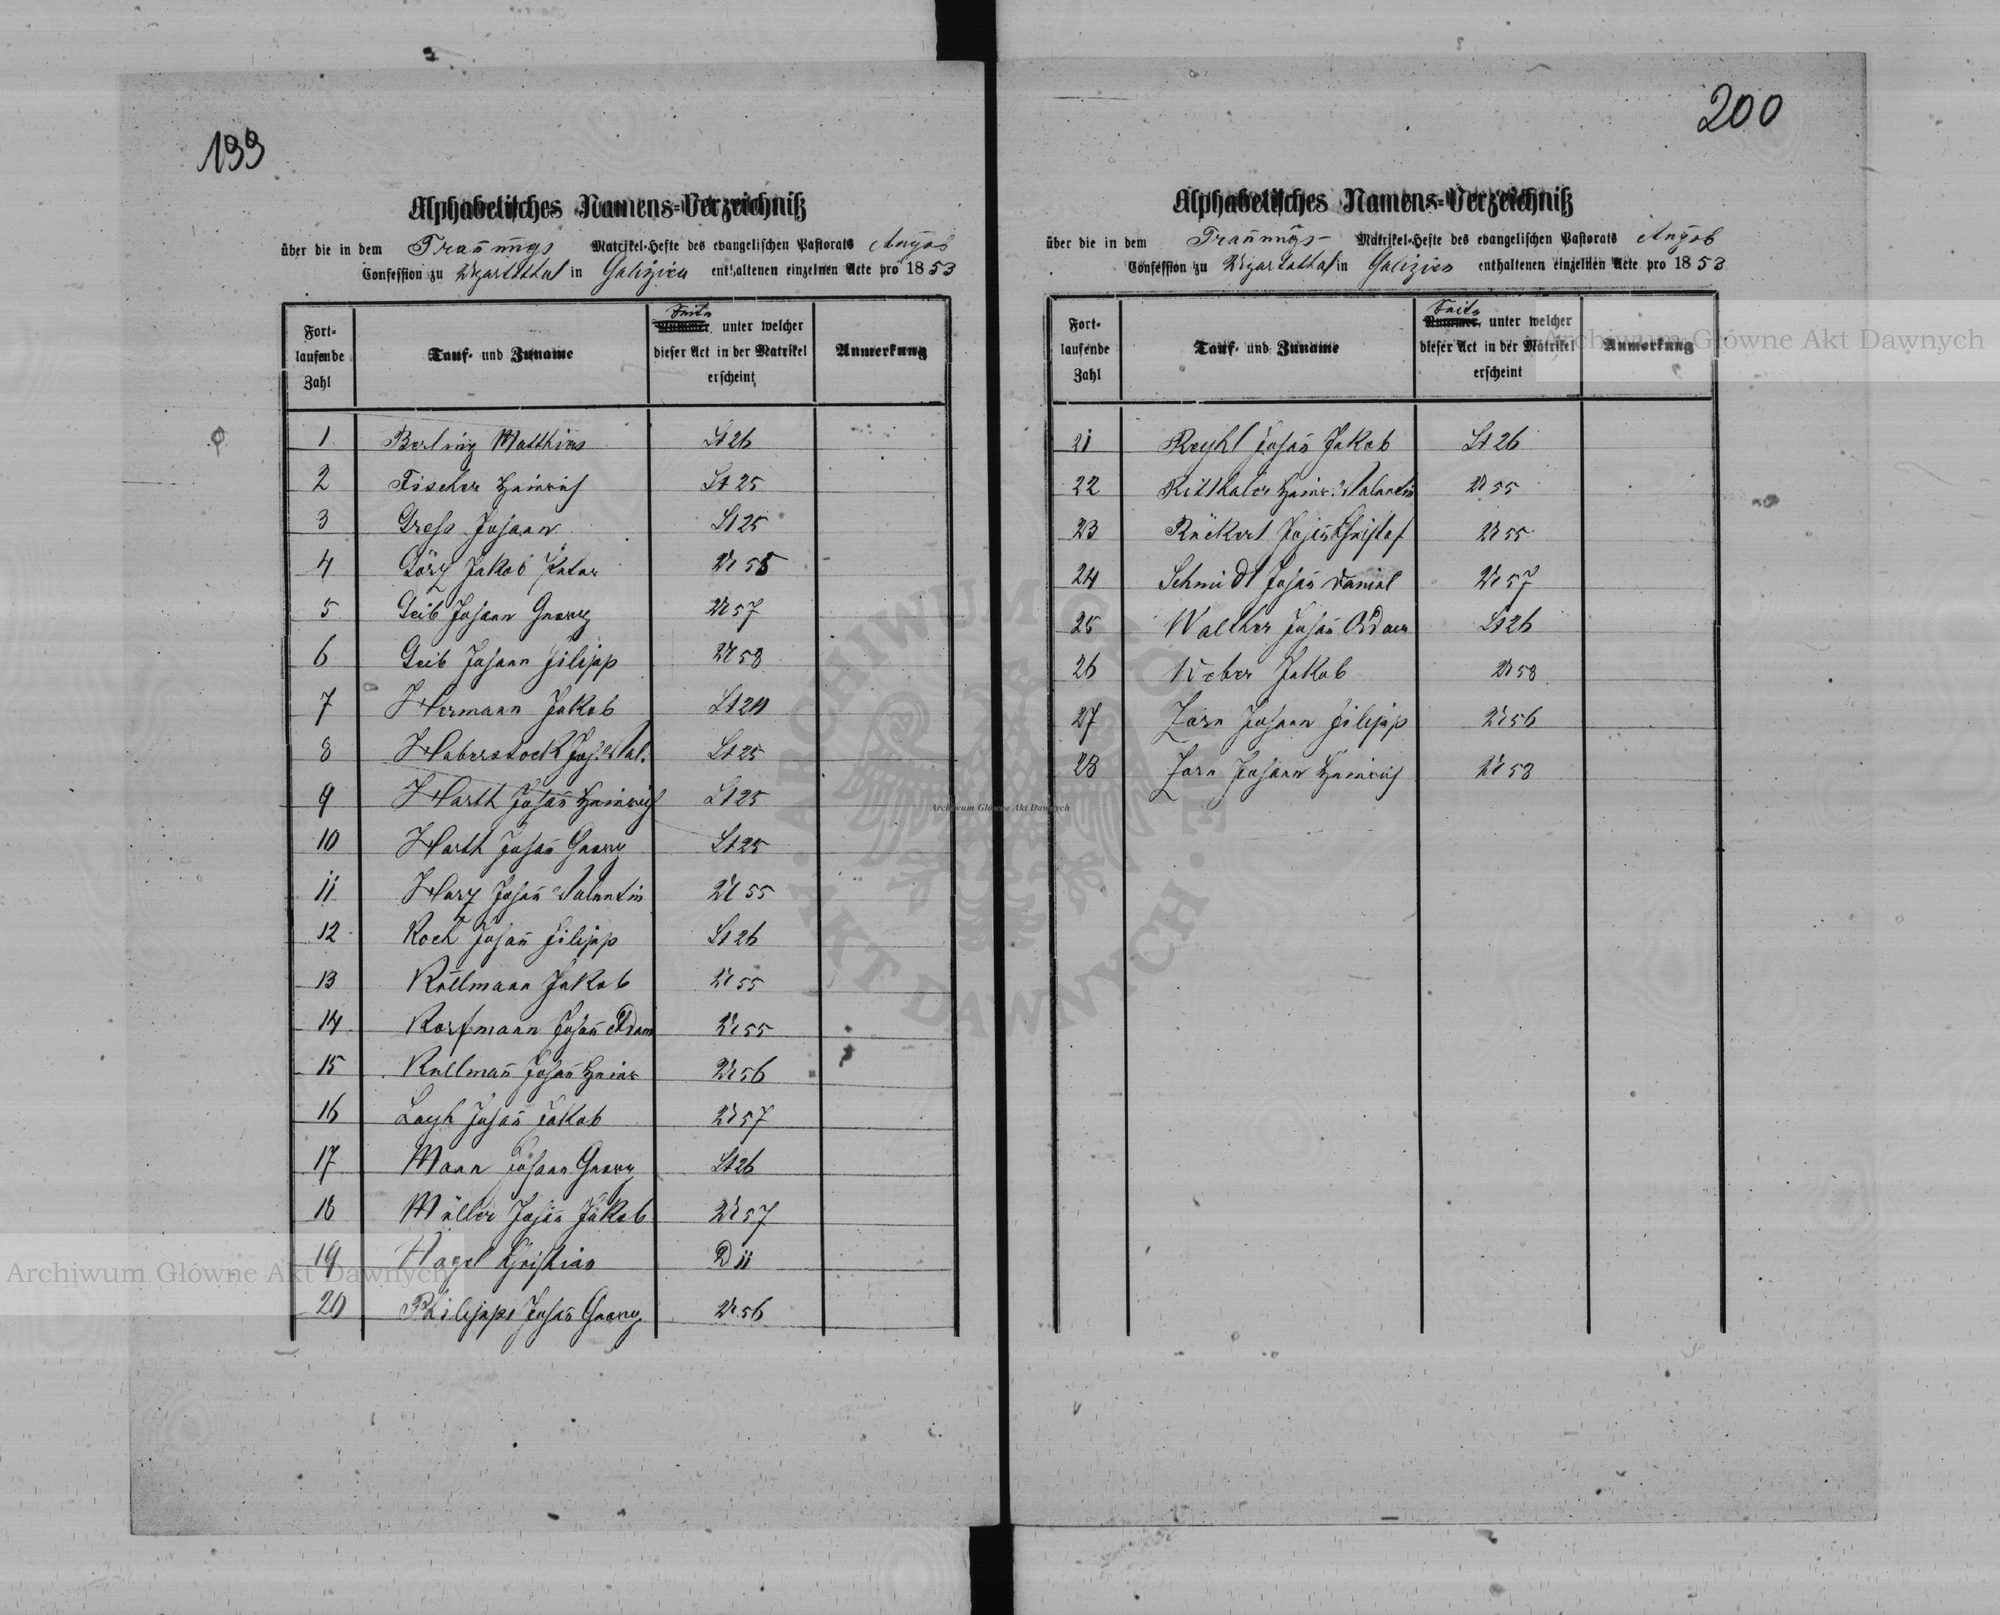 199
Alphabetisches Namens-Verzeichniß
über die in dem Trauungs Matrikel-Hefte des evangelischen Pastorats Augsb
Confession zu Ugartsthal in Galizien enthaltenen einzelnen Acte pro 1853
Fortlaufende Zahl
Tauf- und Zuname
Seite Nummer, unter welcher dieser Act in der Matrikel erscheint
Anmerkung
1 Berling Matthias St 26
2 Fischer Heinrich St 25
3 Gress Johann St 25
4 Göry Jakob Peter U 55
5 Geib Johann Georg U 57
6 Geib Johann Filipp U 58
7 Hermann Jakob St 24
8 Haberstock Joh. Val. St 25
9 Harth Johañ Heinrich St 25
10 Harth Johañ Georg St 25
11 Hary Johañ Valentin U 55
12 Koch Johañ Filipp St 26
13 Kullmann Jakob U 55
14 Korfmann Johañ Adam U 55
15 Kullmañ Johañ Heinr U 56
16 Leyh Johañ Jakob U 57
17 Mann Johann Georg St 26
18 Müller Johañ Jakob U 57
19 Nagel Christian D 11
20 Philipps Johañ Georg U 56
200
Alphabetisches Namens-Verzeichniß
über die in dem Trauungs- Matrikel-Hefte des evangelischen Pastorats Augsb
Confession zu Ugartsthal in Galizien enthaltenen einzelnen Acte pro 1853
Fortlaufende Zahl
Tauf- und Zuname
Seite Nummer, unter welcher dieser Act in der Matrikel erscheint
Anmerkung
21 Reyhl Johañ Jakob St 26
22 Ritthaler Heinr. Valentin U 55
23 Rückert Johañ Christof U 55
24 Schmidt Johañ Daniel U 57
25 Walther Johañ Adam St 26
26 Weber Jakob U 58
27 Zorn Johann Filipp U 56
28 Zorn Johann Heinrich U 58
Archiwum Główne Akt Dawnych
Archiwum Główne Akt Dawnych
Archiwum Główne Akt Dawnych
ARCHIWUM GŁÓWNE AKT DAWNYCH